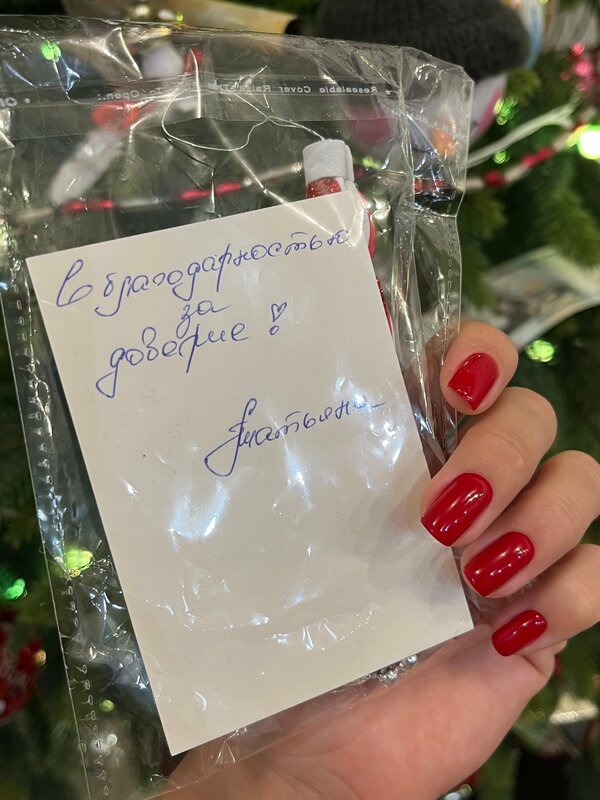 * Resealable Cover Rais
To Open:
В благодарностью
за
доверие!
Татьяна